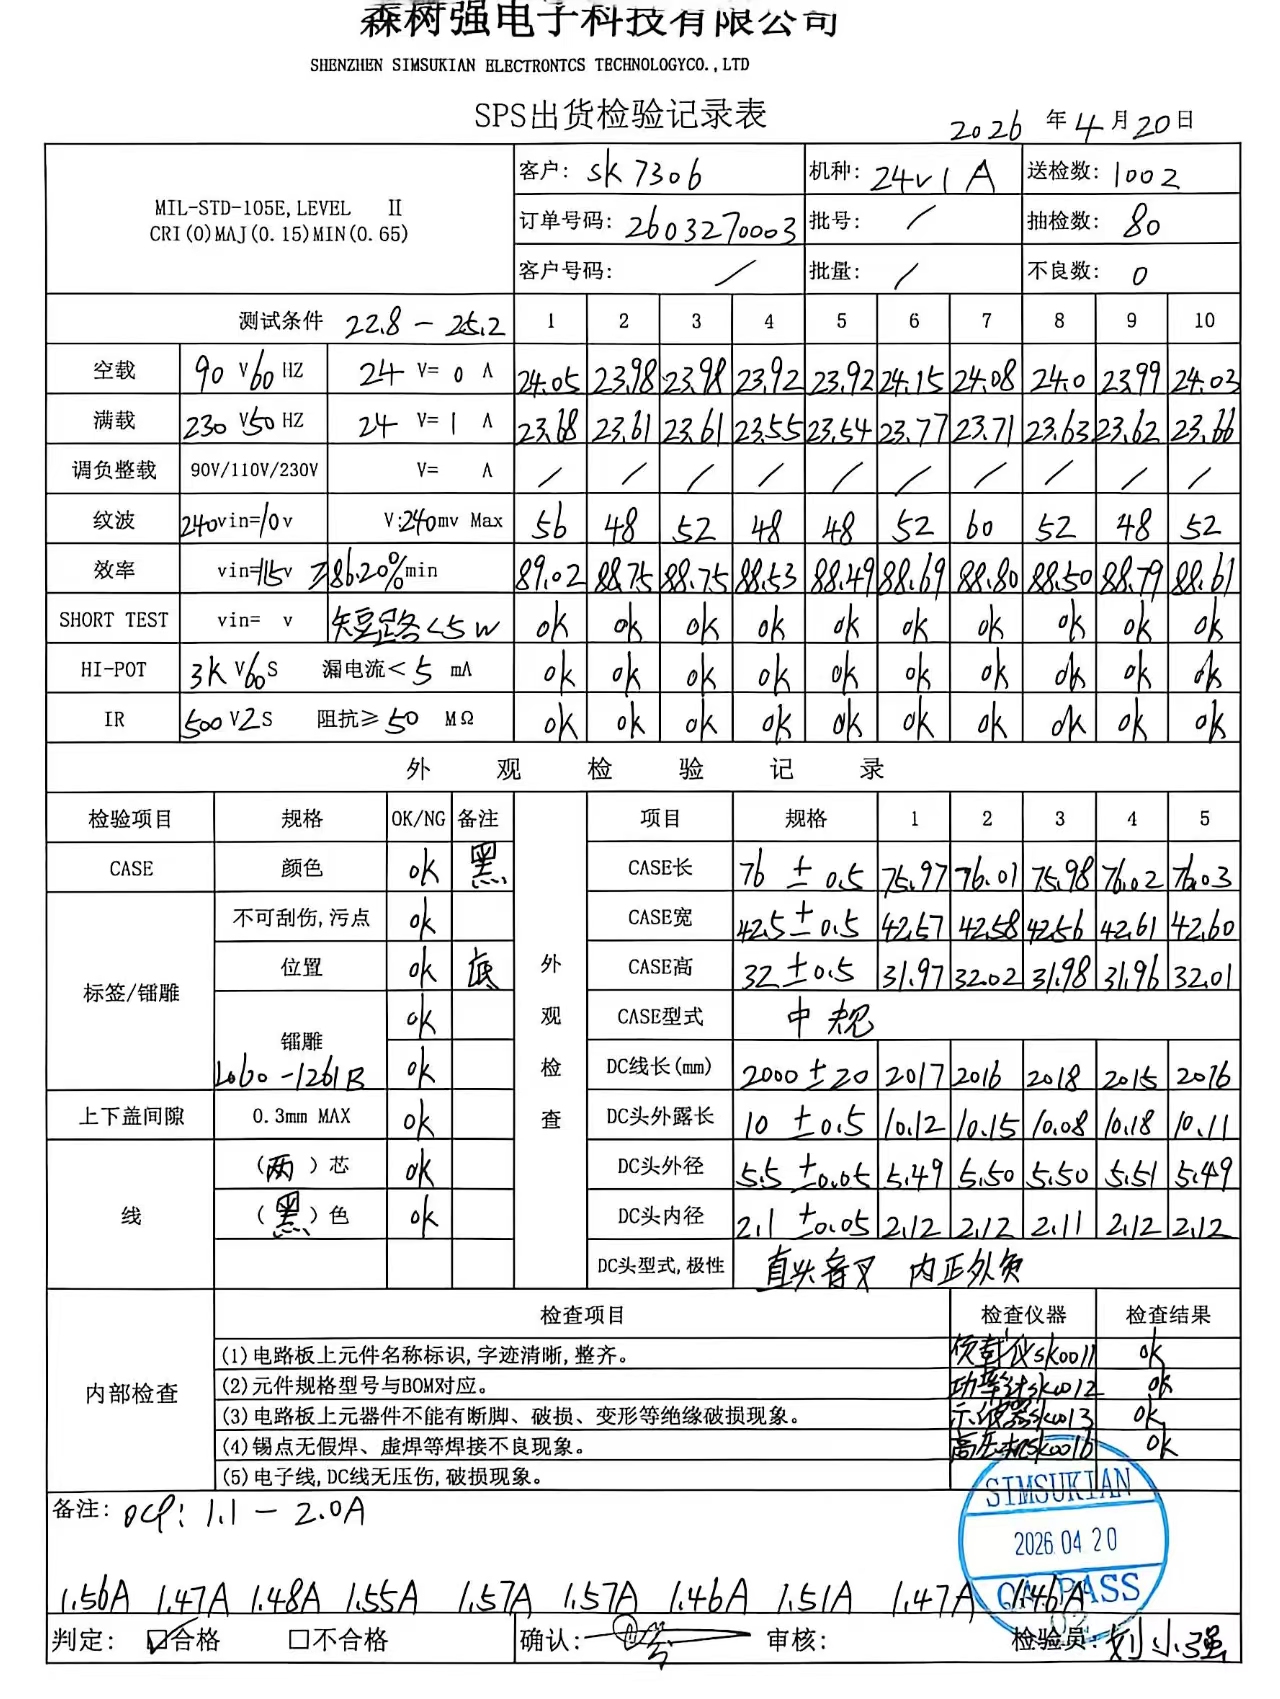 森树强电子科技有限公司
SHENZHEN SIMSUKIAN ELECTRONTCS TECHNOLOGYCO.,LTD
SPS出货检验记录表
2026 年 4 月 20 日
MIL-STD-105E,LEVEL Ⅱ
CRI(0)MAJ(0.15)MIN(0.65)
客户: sk7306 机种: 24V1A 送检数: 1002
订单号码: 2603270003 批号: / 抽检数: 80
客户号码: / 批量: / 不良数: 0
测试条件 22.8-25.2 1 2 3 4 5 6 7 8 9 10
空载 90 V 60 HZ 24 V= 0 A 24.05 23.98 23.98 23.92 23.92 24.15 24.08 24.0 23.99 24.03
满载 230 V 50 HZ 24 V= 1 A 23.68 23.61 23.61 23.55 23.54 23.77 23.71 23.63 23.62 23.66
调负整载 90V/110V/230V V= A / / / / / / / / / /
纹波 240vin=10v V:240mv Max 56 48 52 48 48 52 60 52 48 52
效率 vin=115v ≥86.20%min 89.02 88.75 88.75 88.53 88.49 88.69 88.80 88.50 88.79 88.61
SHORT TEST vin= v 短路<5W ok ok ok ok ok ok ok ok ok ok
HI-POT 3K V 60 S 漏电流< 5 mA ok ok ok ok ok ok ok ok ok ok
IR 500 V 2 S 阻抗≥ 50 MΩ ok ok ok ok ok ok ok ok ok ok
外观检验记录
检验项目 规格 OK/NG 备注 项目 规格 1 2 3 4 5
CASE 颜色 ok 黑 CASE长 76 ± 0.5 75.97 76.01 75.98 76.02 76.03
不可刮伤,污点 ok CASE宽 42.5±0.5 42.57 42.58 42.56 42.61 42.60
标签/镭雕 位置 ok 底 外观检查 CASE高 32±0.5 31.97 32.02 31.98 31.96 32.01
ok CASE型式 中规
镭雕
L060-1261B ok DC线长(mm) 2000±20 2017 2016 2018 2015 2016
上下盖间隙 0.3mm MAX ok DC头外露长 10 ±0.5 10.12 10.15 10.08 10.18 10.11
线 (两)芯 ok DC头外径 5.5 ±0.05 5.49 5.50 5.50 5.51 5.49
(黑)色 ok DC头内径 2.1 ±0.05 2.12 2.12 2.11 2.12 2.12
DC头型式,极性 直头音叉 内正外负
内部检查 检查项目 检查仪器 检查结果
(1)电路板上元件名称标识,字迹清晰,整齐。 负载仪sk0011 ok
(2)元件规格型号与BOM对应。 功率计sk0012 ok
(3)电路板上元器件不能有断脚、破损、变形等绝缘破损现象。 示波器sk0013 ok
(4)锡点无假焊、虚焊等焊接不良现象。 高压机sk0016 ok
(5)电子线,DC线无压伤,破损现象。
备注: OCP: 1.1-2.0A
SIMSUKIAN
2026.04 20
QA PASS
1.56A 1.47A 1.48A 1.55A 1.57A 1.57A 1.46A 1.51A 1.47A 1.46A
判定: ☑合格 □不合格 确认: 审核: 检验员: 刘小强